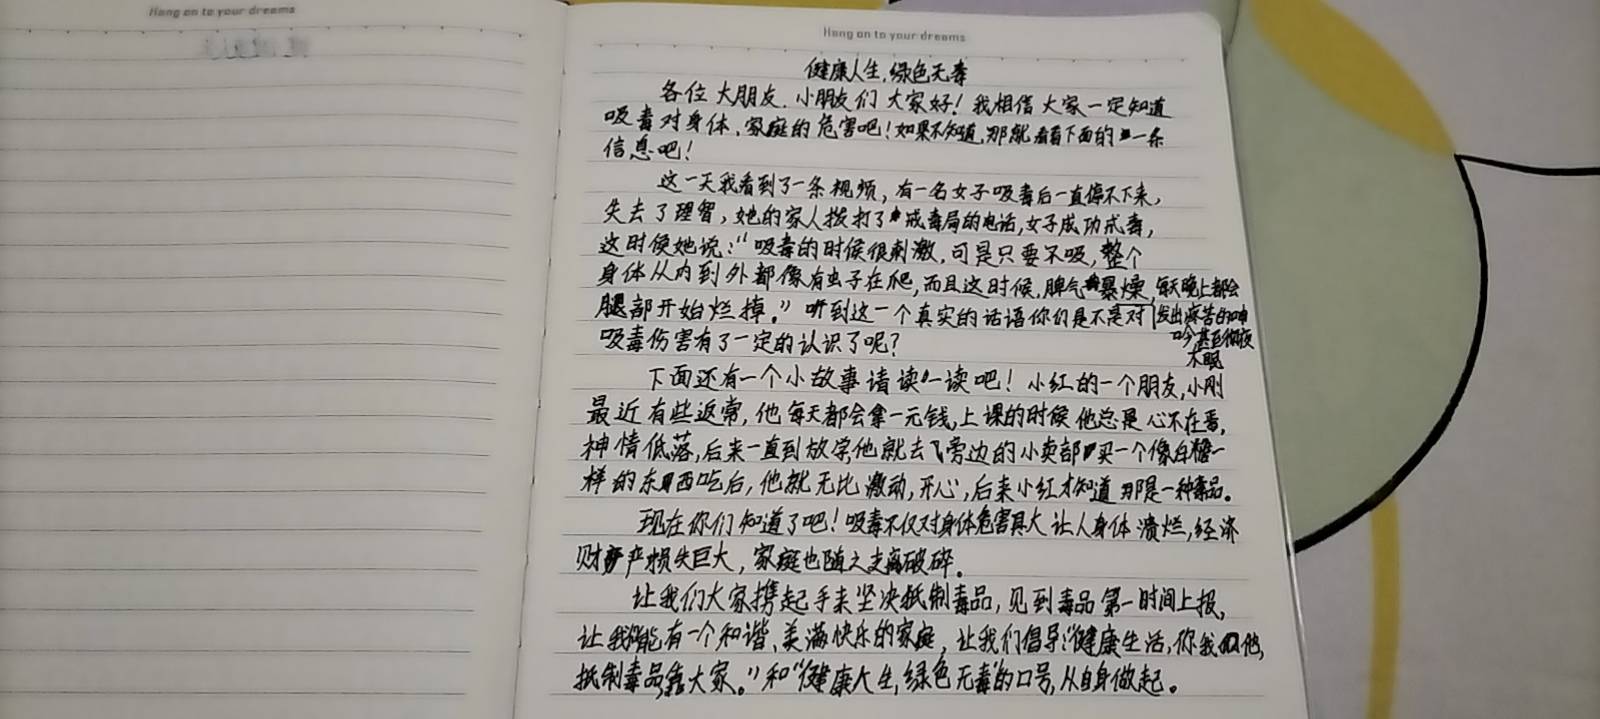 Hang on to your dreams
Hang on to your dreams
健康人生,绿色无毒
各位大朋友、小朋友们大家好!我相信大家一定知道
吸毒对身体、家庭的危害吧!如果不知道,那就看看下面的一条
信息吧!
这一天我看到了一条视频,有一名女子吸毒后一直停不下来,
失去了理智,她的家人拨打了戒毒局的电话,女子成功戒毒,
这时候她说:“吸毒的时候很刺激,可是只要不吸,整个
身体从内到外都像有虫子在爬,而且这时候,脾气暴燥,每天晚上都会
发出痛苦的呻
吟甚至彻夜
不眠
腿部开始烂掉。”听到这一个真实的话语你们是不是对
吸毒伤害有了一定的认识了呢?
下面还有一个小故事请读一读吧!小红的一个朋友,小刚
最近有些返常,他每天都会拿一元钱,上课的时候他总是心不在焉,
神情低落,后来一直到放学,他就去旁边的小卖部买一个像白糖一
样的东西吃后,他就无比激动,开心,后来小红才知道那是一种毒品。
现在你们知道了吧!吸毒不仅对身体危害具大让人身体溃烂,经济
财产损失巨大,家庭也随之支离破碎。
让我们大家携起手来坚决抵制毒品,见到毒品第一时间上报,
让我能有一个和谐、美满快乐的家庭,让我们倡导“健康生活,你我他,
抵制毒品靠大家。”和“健康人生,绿色无毒”的口号,从自身做起。